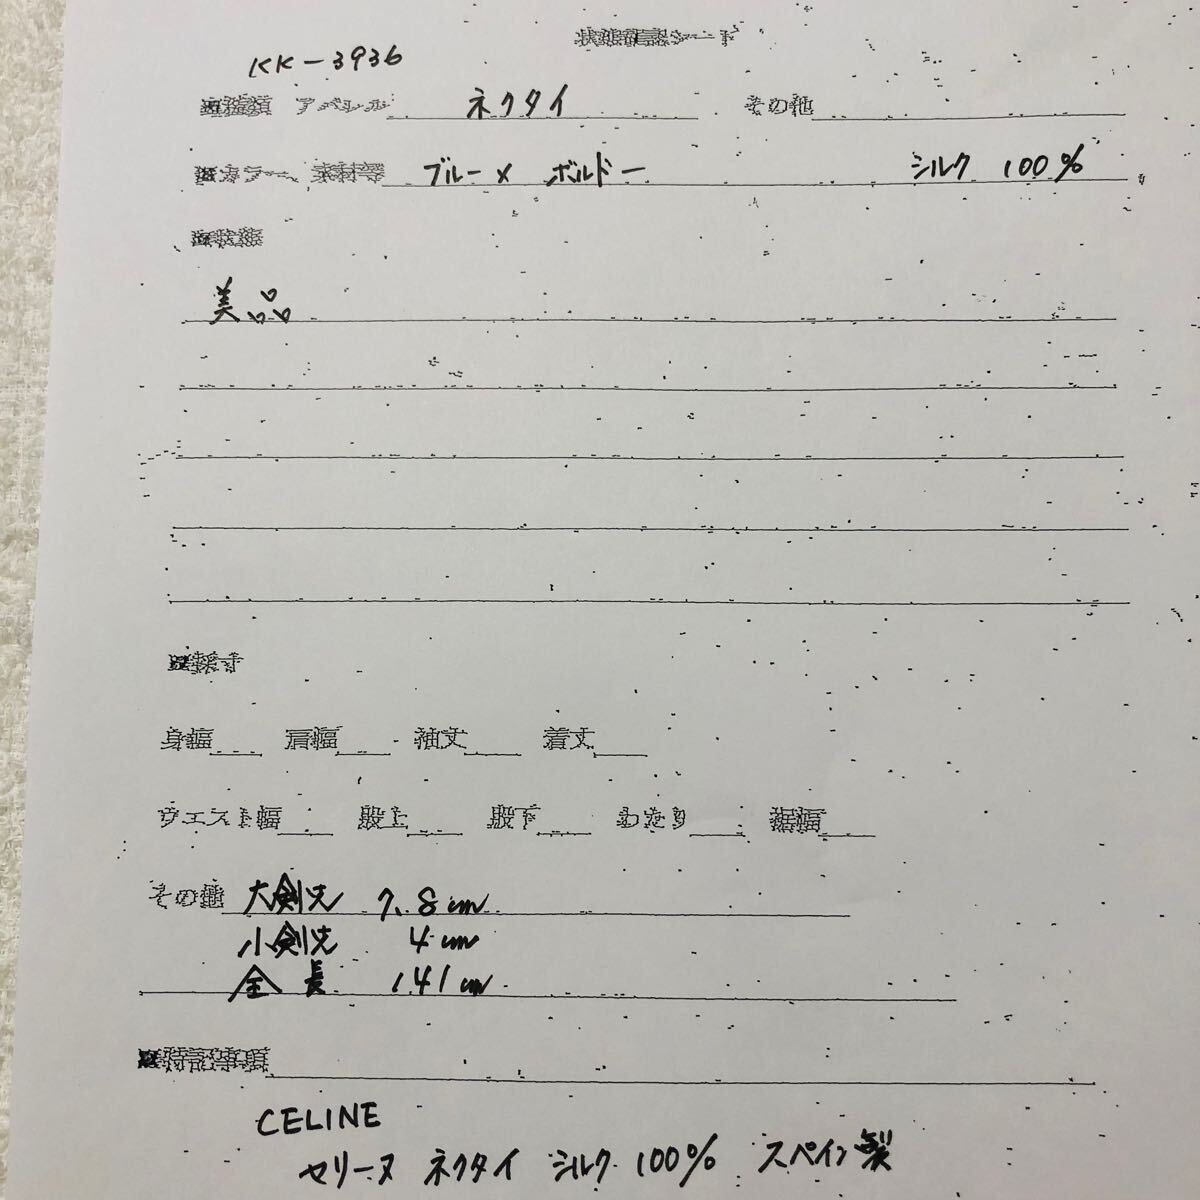 状態確認シート
KK-3936
■種類 アパレル ネクタイ その他
■カラー、素材等 ブルー× ボルドー シルク 100%
■状態
美品
■採寸
身幅 肩幅 袖丈 着丈
ウエスト幅 股上 股下 わたり 裾幅
その他 大剣先 7.8cm
小剣先 4cm
全長 141cm
■特記事項
CELINE
セリーヌ ネクタイ シルク 100% スペイン製